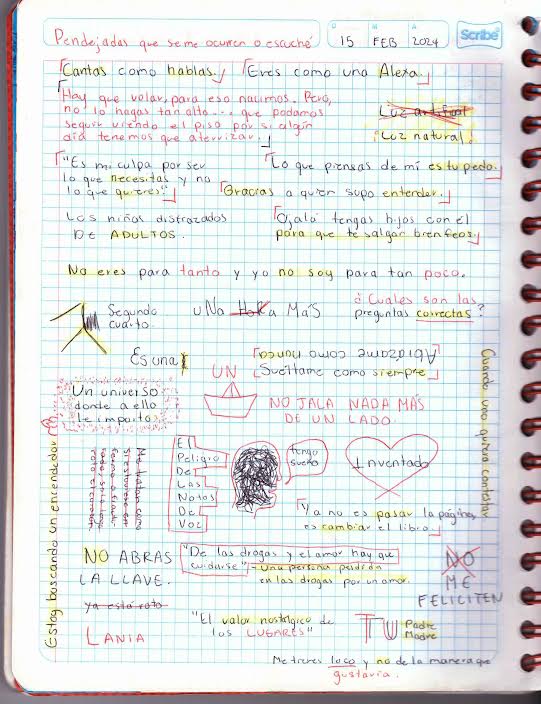 Pendejadas que se me ocurren o escuché
D M A
15 FEB 2024
Scribe
Cantas como hablas.
Eres como una Alexa.
Hay que volar, para eso nacimos. Pero,
no lo hagas tan alto... que podamos
seguir viendo el piso por si algún
día tenemos que aterrizar.
Luz artificial
¡Luz natural!
"Es mi culpa por ser
lo que necesitas y no
lo que quieres"
Lo que piensas de mí es tu pedo.
Gracias a quien supo entender.
Los niños disfrazados
DE ADULTOS.
Ojalá tengas hijos con él
para que te salgan bien feos
No eres para tanto y yo no soy para tan poco.
Segundo
cuarto
UNA HORA MÁS
¿Cuáles son las
preguntas correctas?
Es una
Abrázame como nunca
Suéltame como siempre
Un universo
donde a ello
le importo
UN
NO JALA NADA MÁS
DE UN LADO.
Cuando uno quiera contestar
Estoy buscando un encendedor
El
Peligro
De
Las
Notas
De
Voz
tengo
sueño
Inventado
Ya no es pasar la página,
es cambiar el libro.
NO ABRAS
LA LLAVE.
ya está roto
LANIA
"De las drogas y el amor hay que
cuidarse" - una persona perdida
en las drogas por un amor.
NO
ME
FELICITEN
"El valor nostálgico de
los LUGARES"
TU Padre
Madre
Me traes loco y no de la manera que
gustaría.